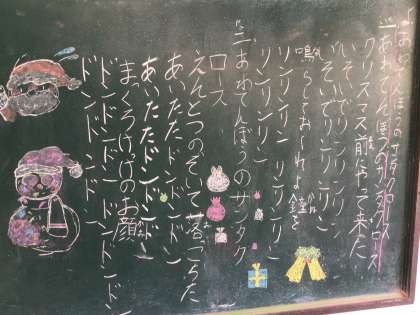 あわてんぼうのサンタクロース
一あわてんぼうのサンタクロース
クリスマス前にやって来た
いそいでリンリンリン
いそいでリンリンリン
鳴らしておくれよ鐘を
リンリンリン リンリンリン
リンリンリン
二あわてんぼうのサンタク
ロース
えんとつのぞいて落っこちた
あいたたドンドンドン
あいたたドンドンドン
まっくろけのお顔
ドンドンドン ドンドンドン
ドンドンドン